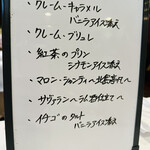 ・クレーム・キャラメル
バニラアイス添え
・クレーム・ブリュレ
・紅茶のプリン
シナモンアイス添え
・マロン・シャンティ
・サヴァラン ラム酒仕立て
・イチゴのタルト
バニラアイス添え